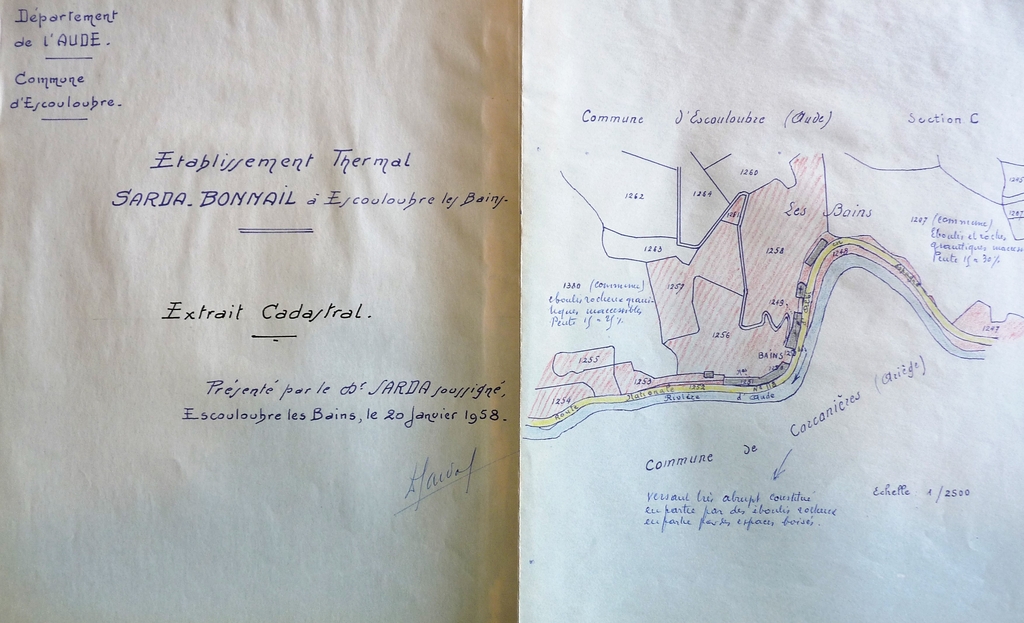 Département
de l'AUDE.
Commune
d'Escouloubre.
Etablissement Thermal
SARDA-BONNAIL à Escouloubre les Bains-
Extrait Cadastral.
Présenté par le Dr SARDA soussigné,
Escouloubre les Bains, le 20 Janvier 1958.
Commune d'Escouloubre (Aude) Section C
1260
1262
1264
1261
1263
1258
Les Bains
1257
1207 (commune)
Eboulis et roches
granitiques inaccess
Pente 15 = 30%
1248
1380 (commune)
eboulis rocheux grani-
tiques inaccessibles
Pente 15 = 25%
1249
1256
BAINS
1247
1255
1253
1252
1251
1254
Route Nationale N° 118
Rivière d'Aude
Commune de Carcanières (Ariège)
Versant très abrupt constitué
en partie par des éboulis rocheux
en partie par des espaces boisés.
Echelle 1/2500